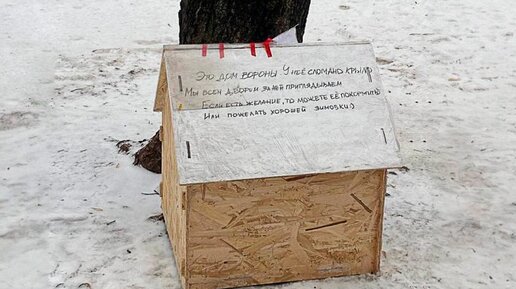 Это дом вороны У неё сломано крыло
Мы всем двором за ней приглядываем
Если есть желание, то можете её покормить
Или пожелать хорошей зимовки:)